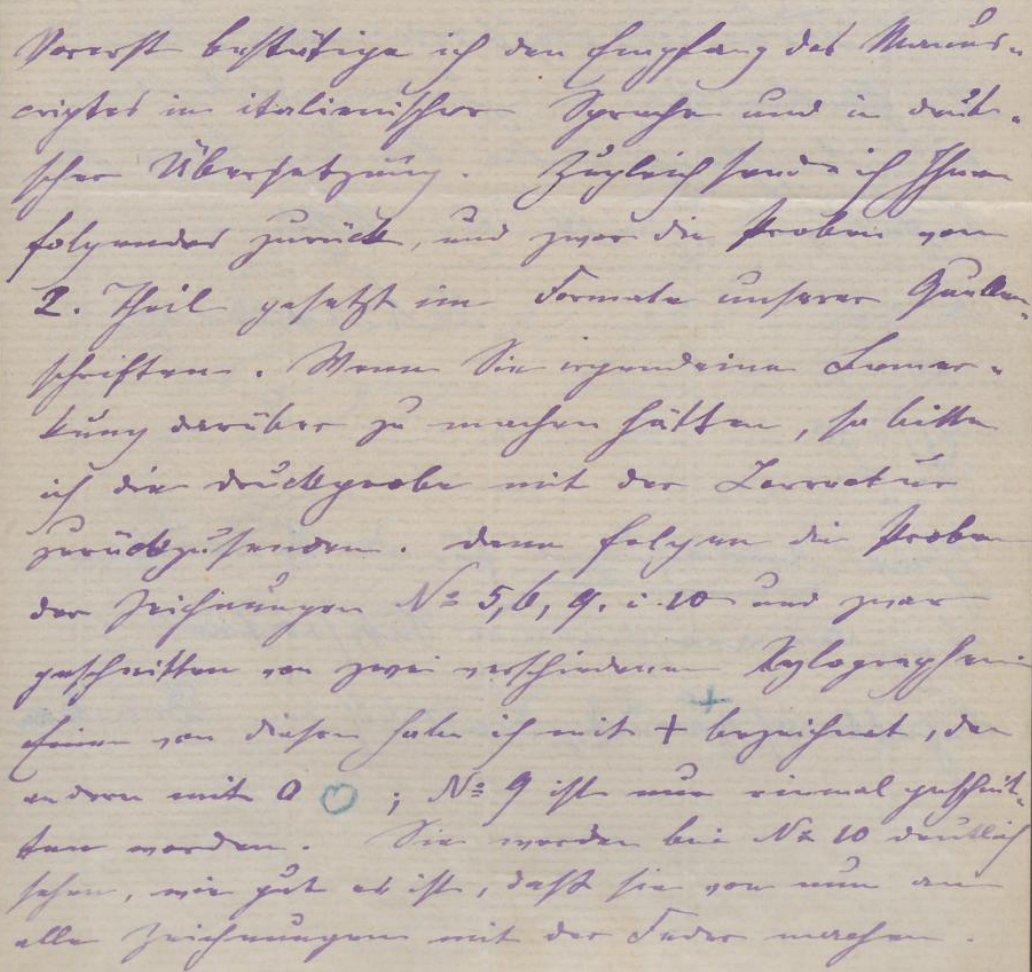 Vorerst bestätige ich den Empfang des Manus-
criptes in italienischer Sprache und in deut-
scher Übersetzung. Zugleich sende ich Ihnen
folgendes zurück, und zwar die Proben vom
2. Theil gesetzt im Formate unserer Quellen-
schriften. Wenn Sie irgendeine Bemer-
kung darüber zu machen hätten, so bitte
ich die Druckprobe mit der Correctur
zurückzusenden. Dann folgen die Proben
der Zeichnungen No 5, 6, 9. i. 10 und zwar
geschnitten von zwei verschiedenen Xylographen.
Einen von diesen habe ich mit + bezeichnet, den
andern mit O ; No 9 ist nur einmal geschnit-
ten worden. Sie werden bei No 10 deutlich
sehen, wie gut es ist, daß sie von nun an
alle Zeichnungen mit der Feder machen.